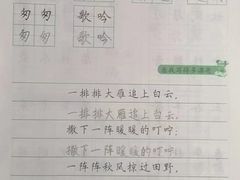 匆 匆 歌 吟
匆 匆 歌 吟
一排排大雁追上白云,
一排排大雁追上白云,
撒下一阵暖暖的叮咛;
撒下一阵暖暖的叮咛;
一阵阵秋风掠过田野,